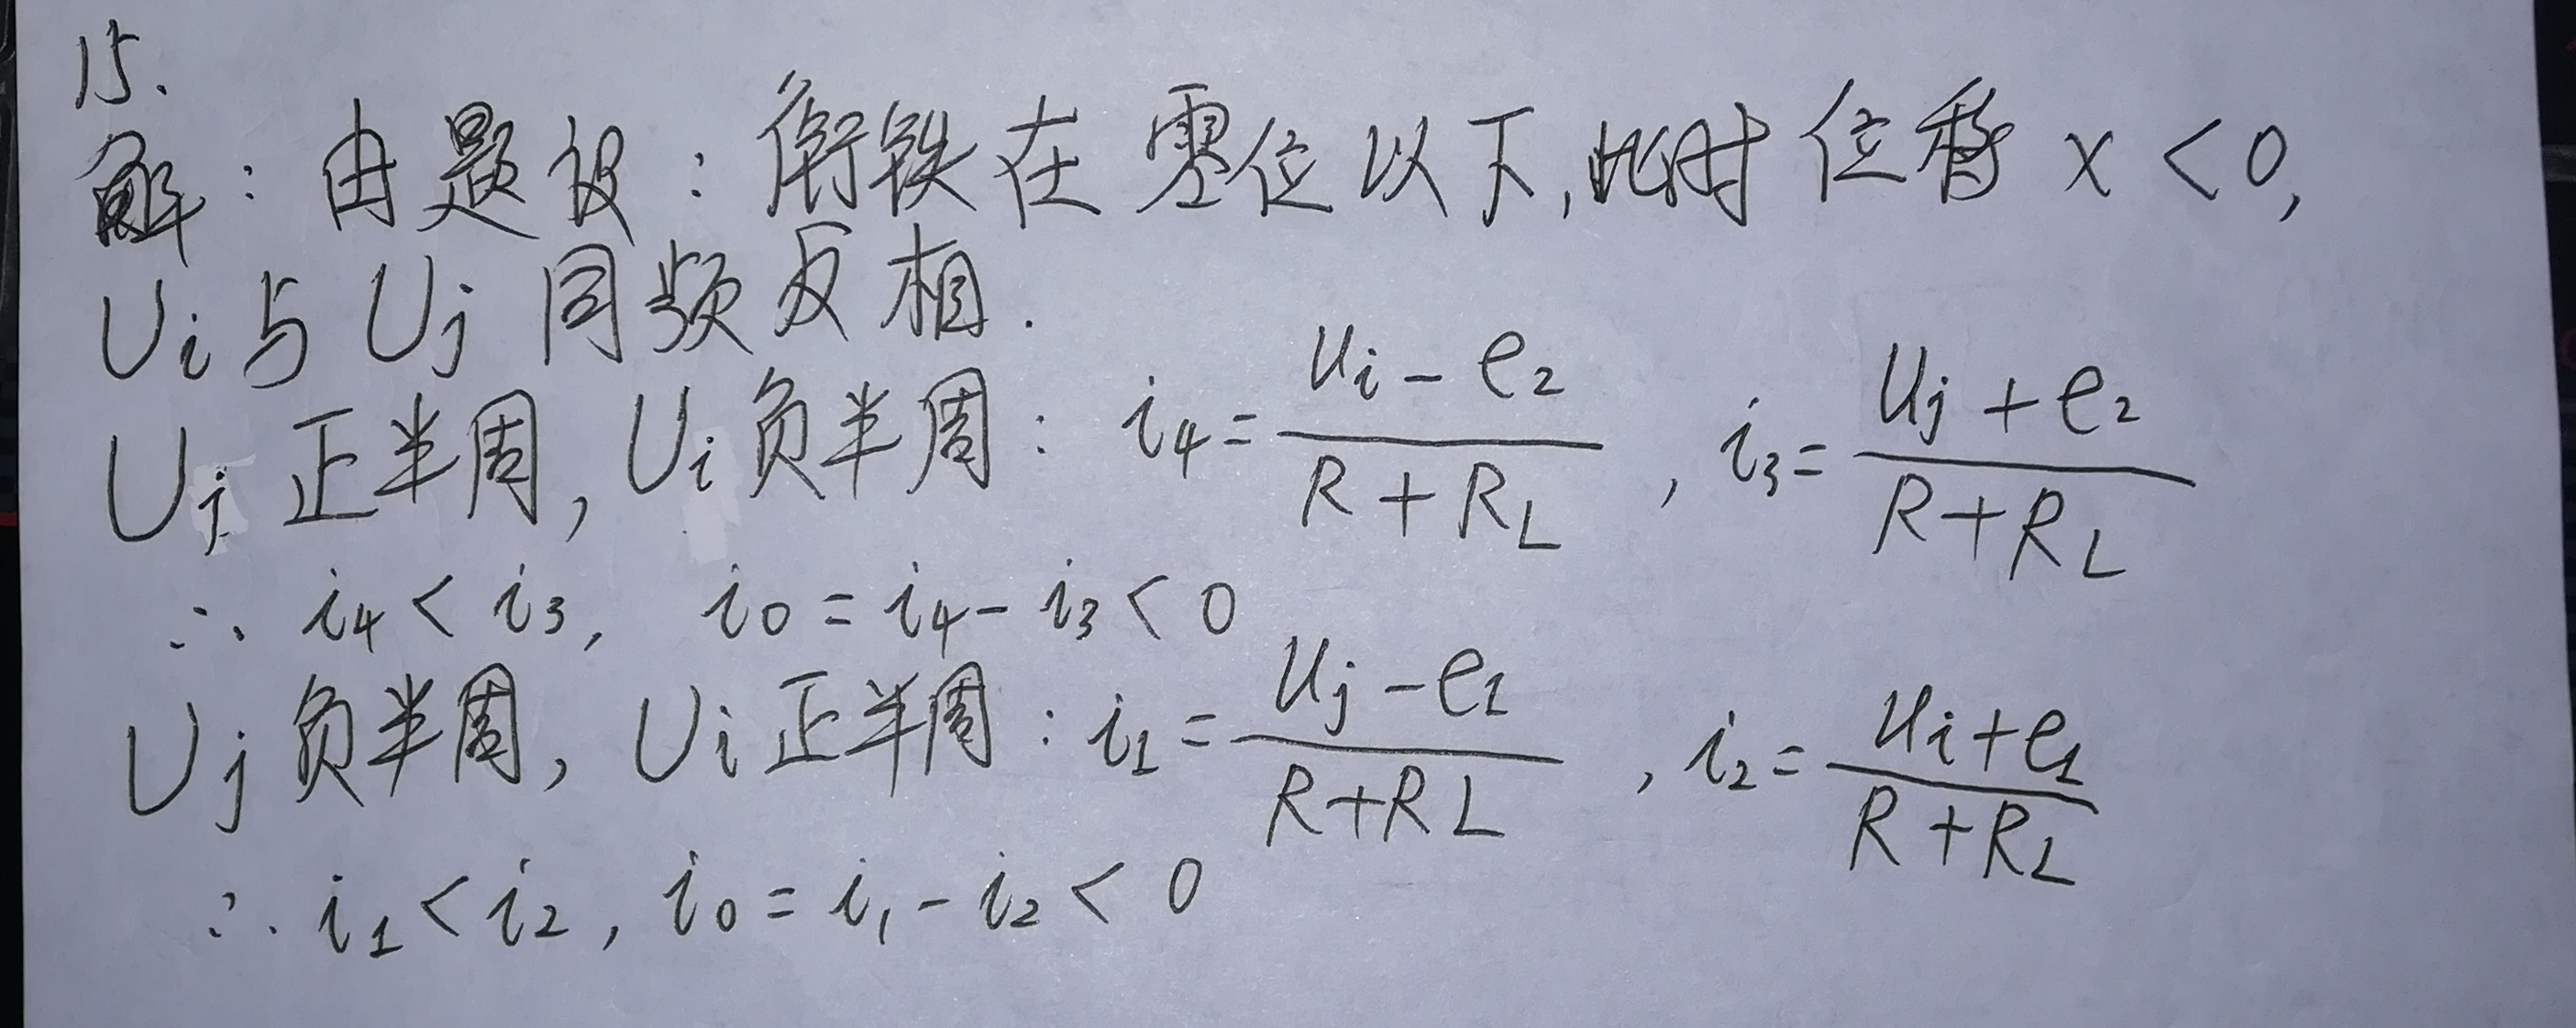 15.
解：由题设：衔铁在零位以下，此时位移 x < 0,
Ui 与 Uj 同频反相.
Uj 正半周, Ui 负半周： i4 = (ui - e2)/(R + RL) , i3 = (uj + e2)/(R + RL)
∴ i4 < i3, i0 = i4 - i3 < 0
Uj 负半周, Ui 正半周：i1 = (uj - e1)/(R + RL) , i2 = (ui + e1)/(R + RL)
∴ i1 < i2, i0 = i1 - i2 < 0